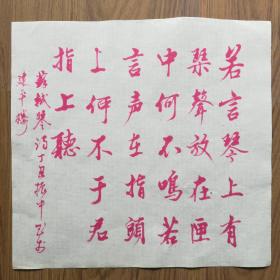 若言琴上有
琹聲放在匣
中何不鳴若
言声在指頭
上何不于君
指上聽
蘇軾琴诗丁丑
建平